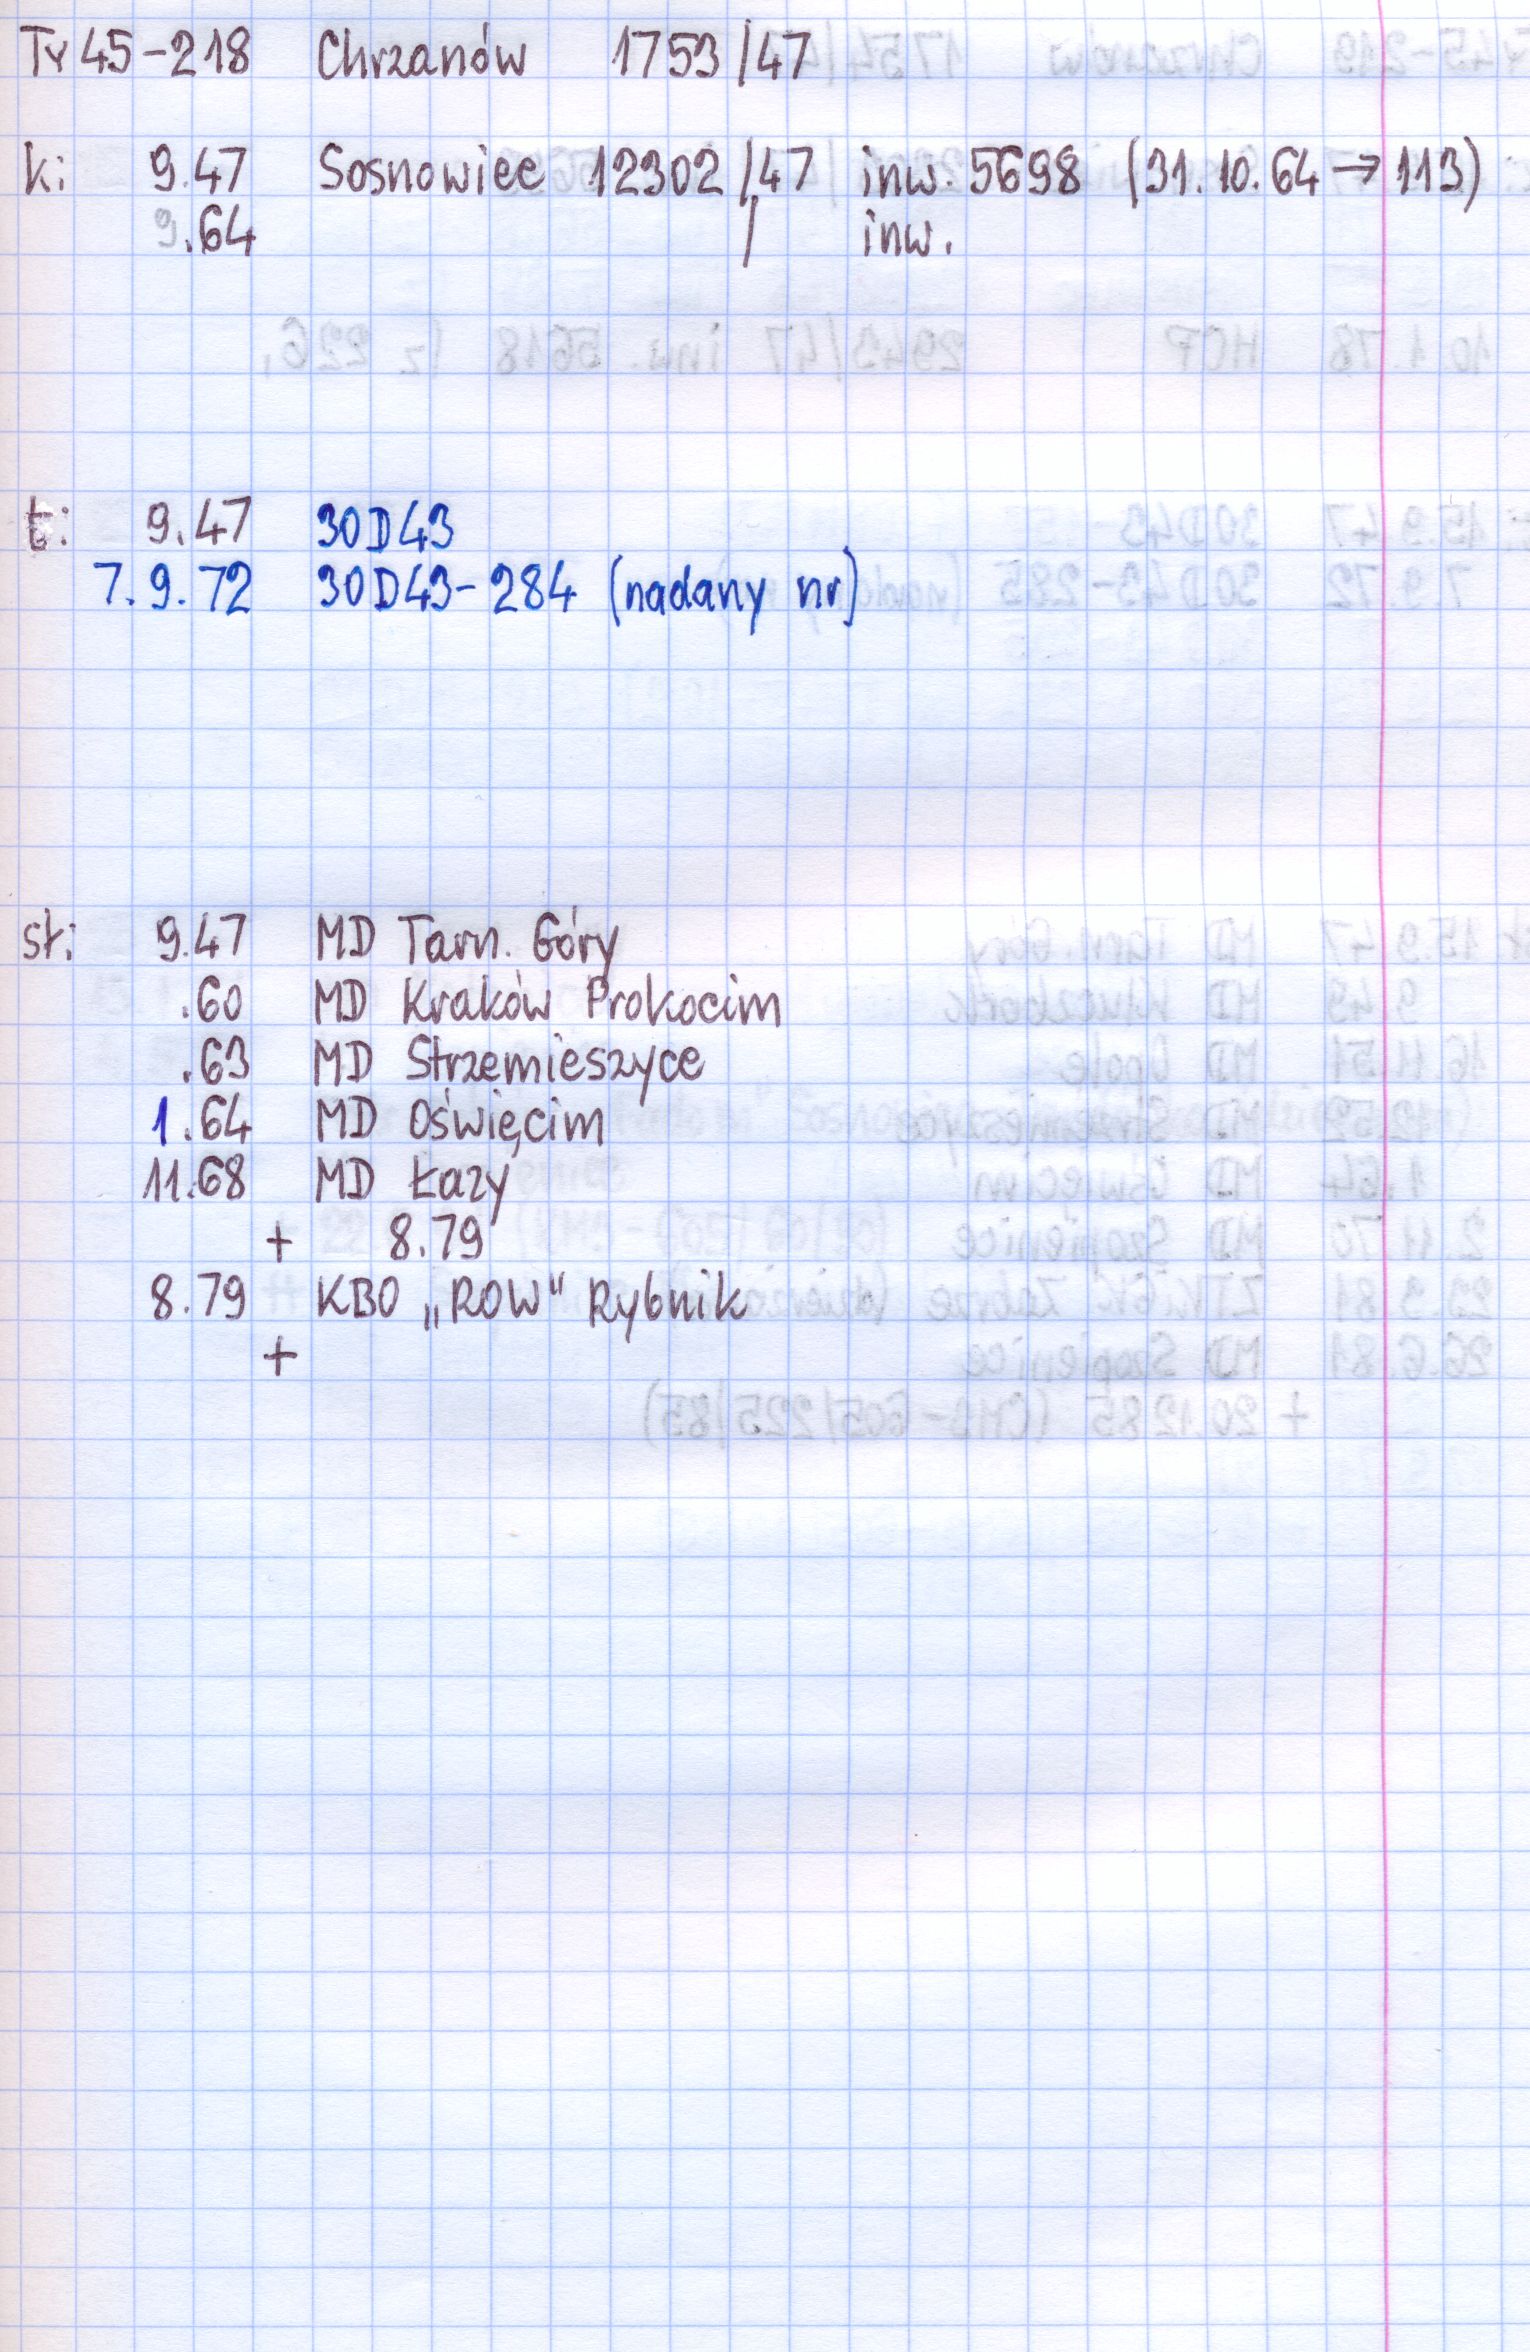 Ty45-218 Chrzanów 1753/47
k: 9.47 Sosnowiec 12302/47 inw. 5698 (31.10.64→113)
9.64 / inw.
t: 9.47 30D43
7.9.72 30D43-284 (nadany nr)
st: 9.47 MD Tarn. Góry
.60 MD Kraków Prokocim
.63 MD Strzemieszyce
1.64 MD Oświęcim
11.68 MD Łazy
+ 8.79
8.79 KBO „ROW" Rybnik
+